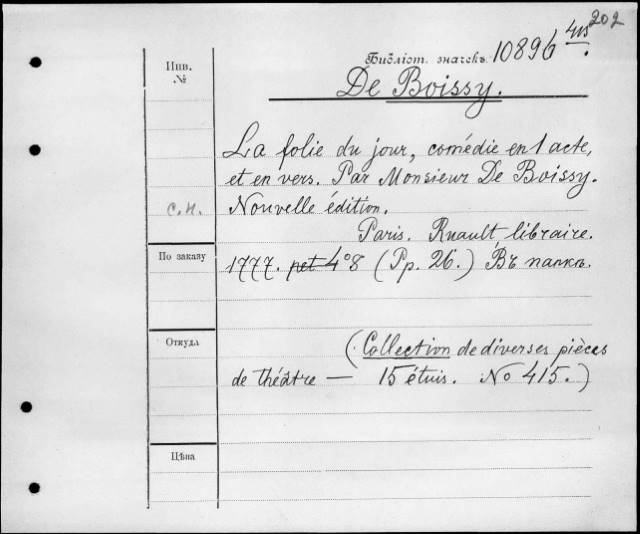 202
Библіот. значекъ. 10896 415.
Инв.
№
De Boissy.
La folie du jour, comédie en 1 acte,
et en vers. Par Monsieur De Boissy.
С.Н.
Nouvelle édition.
Paris. Ruault, libraire.
По заказу
1777. pet 4° 8 (Pp. 26.) Въ папкѣ.
Откуда
(Collection de diverses pièces
de théâtre — 15 étuis. No 415.)
Цѣна